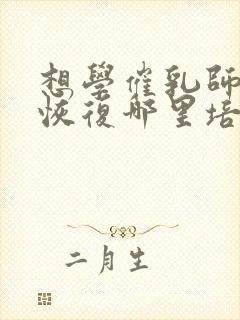 想學催乳師
恢復哪里培
二月生